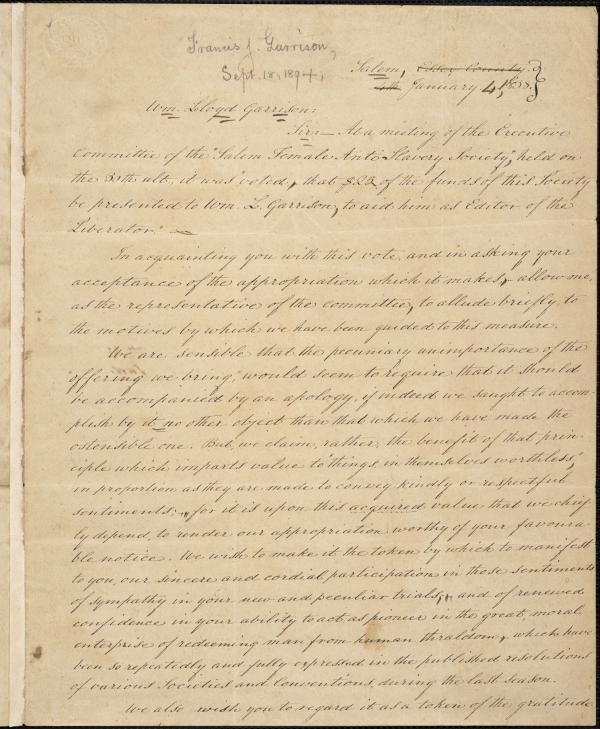 Francis J. Garrison,
Sept. 18, 1894.
Salem, Essex County.
4th January 4, 1838.
Wm. Lloyd Garrison:
Sir:— At a meeting of the Executive
Committee of the "Salem Female Anti-Slavery Society," held on
the 30th ult., it was "voted, that $20 of the funds of this Society
be presented to Wm. L. Garrison, to aid him as Editor of the
Liberator."
In acquainting you with this vote, and in asking your
acceptance of the appropriation which it makes, allow me,
as the representative of the committee, to allude briefly to
the motives by which we have been guided to this measure.
We are sensible that the pecuniary unimportance of the
offering we bring, would seem to require that it should
be accompanied by an apology, if indeed we sought to accom-
plish by it no other object than that which we have made the
ostensible one. But, we claim, rather, the benefit of that prin-
ciple which imparts value to "things, in themselves worthless,"
in proportion as they are made to convey kindly or respectful
sentiments;—for it is upon this acquired value that we chief-
ly depend, to render our appropriation worthy of your favoura-
ble notice. We wish to make it the token by which to manifest
to you, our sincere and cordial participation in those sentiments
of sympathy in your new and peculiar trials, and of renewed
confidence in your ability to act as pioneer in the great, moral
enterprise of redeeming man from human thraldom, which have
been so repeatedly and fully expressed in the published resolutions
of various Societies and Conventions, during the last season.
We also wish you to regard it as a token of the gratitude